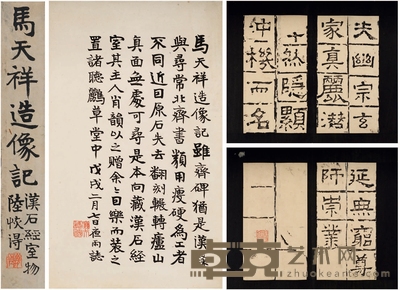 馬天祥造像記
漢石經室物
陸恢得
馬天祥造像記雖齊碑猶是漢
與尋常北齊書類用瘦硬為工者
不同近日原石失去翻刻輾轉廬山
真面無處可尋是本向藏漢石經
室其主人肖韻以之贈余余因樂而裝之
置諸聽鸝草堂中戊戌二月七日
夫幽宗玄
家真麗潛
然隱顯
仲機而名
延無窮尊
師崇業
卓克艺术网